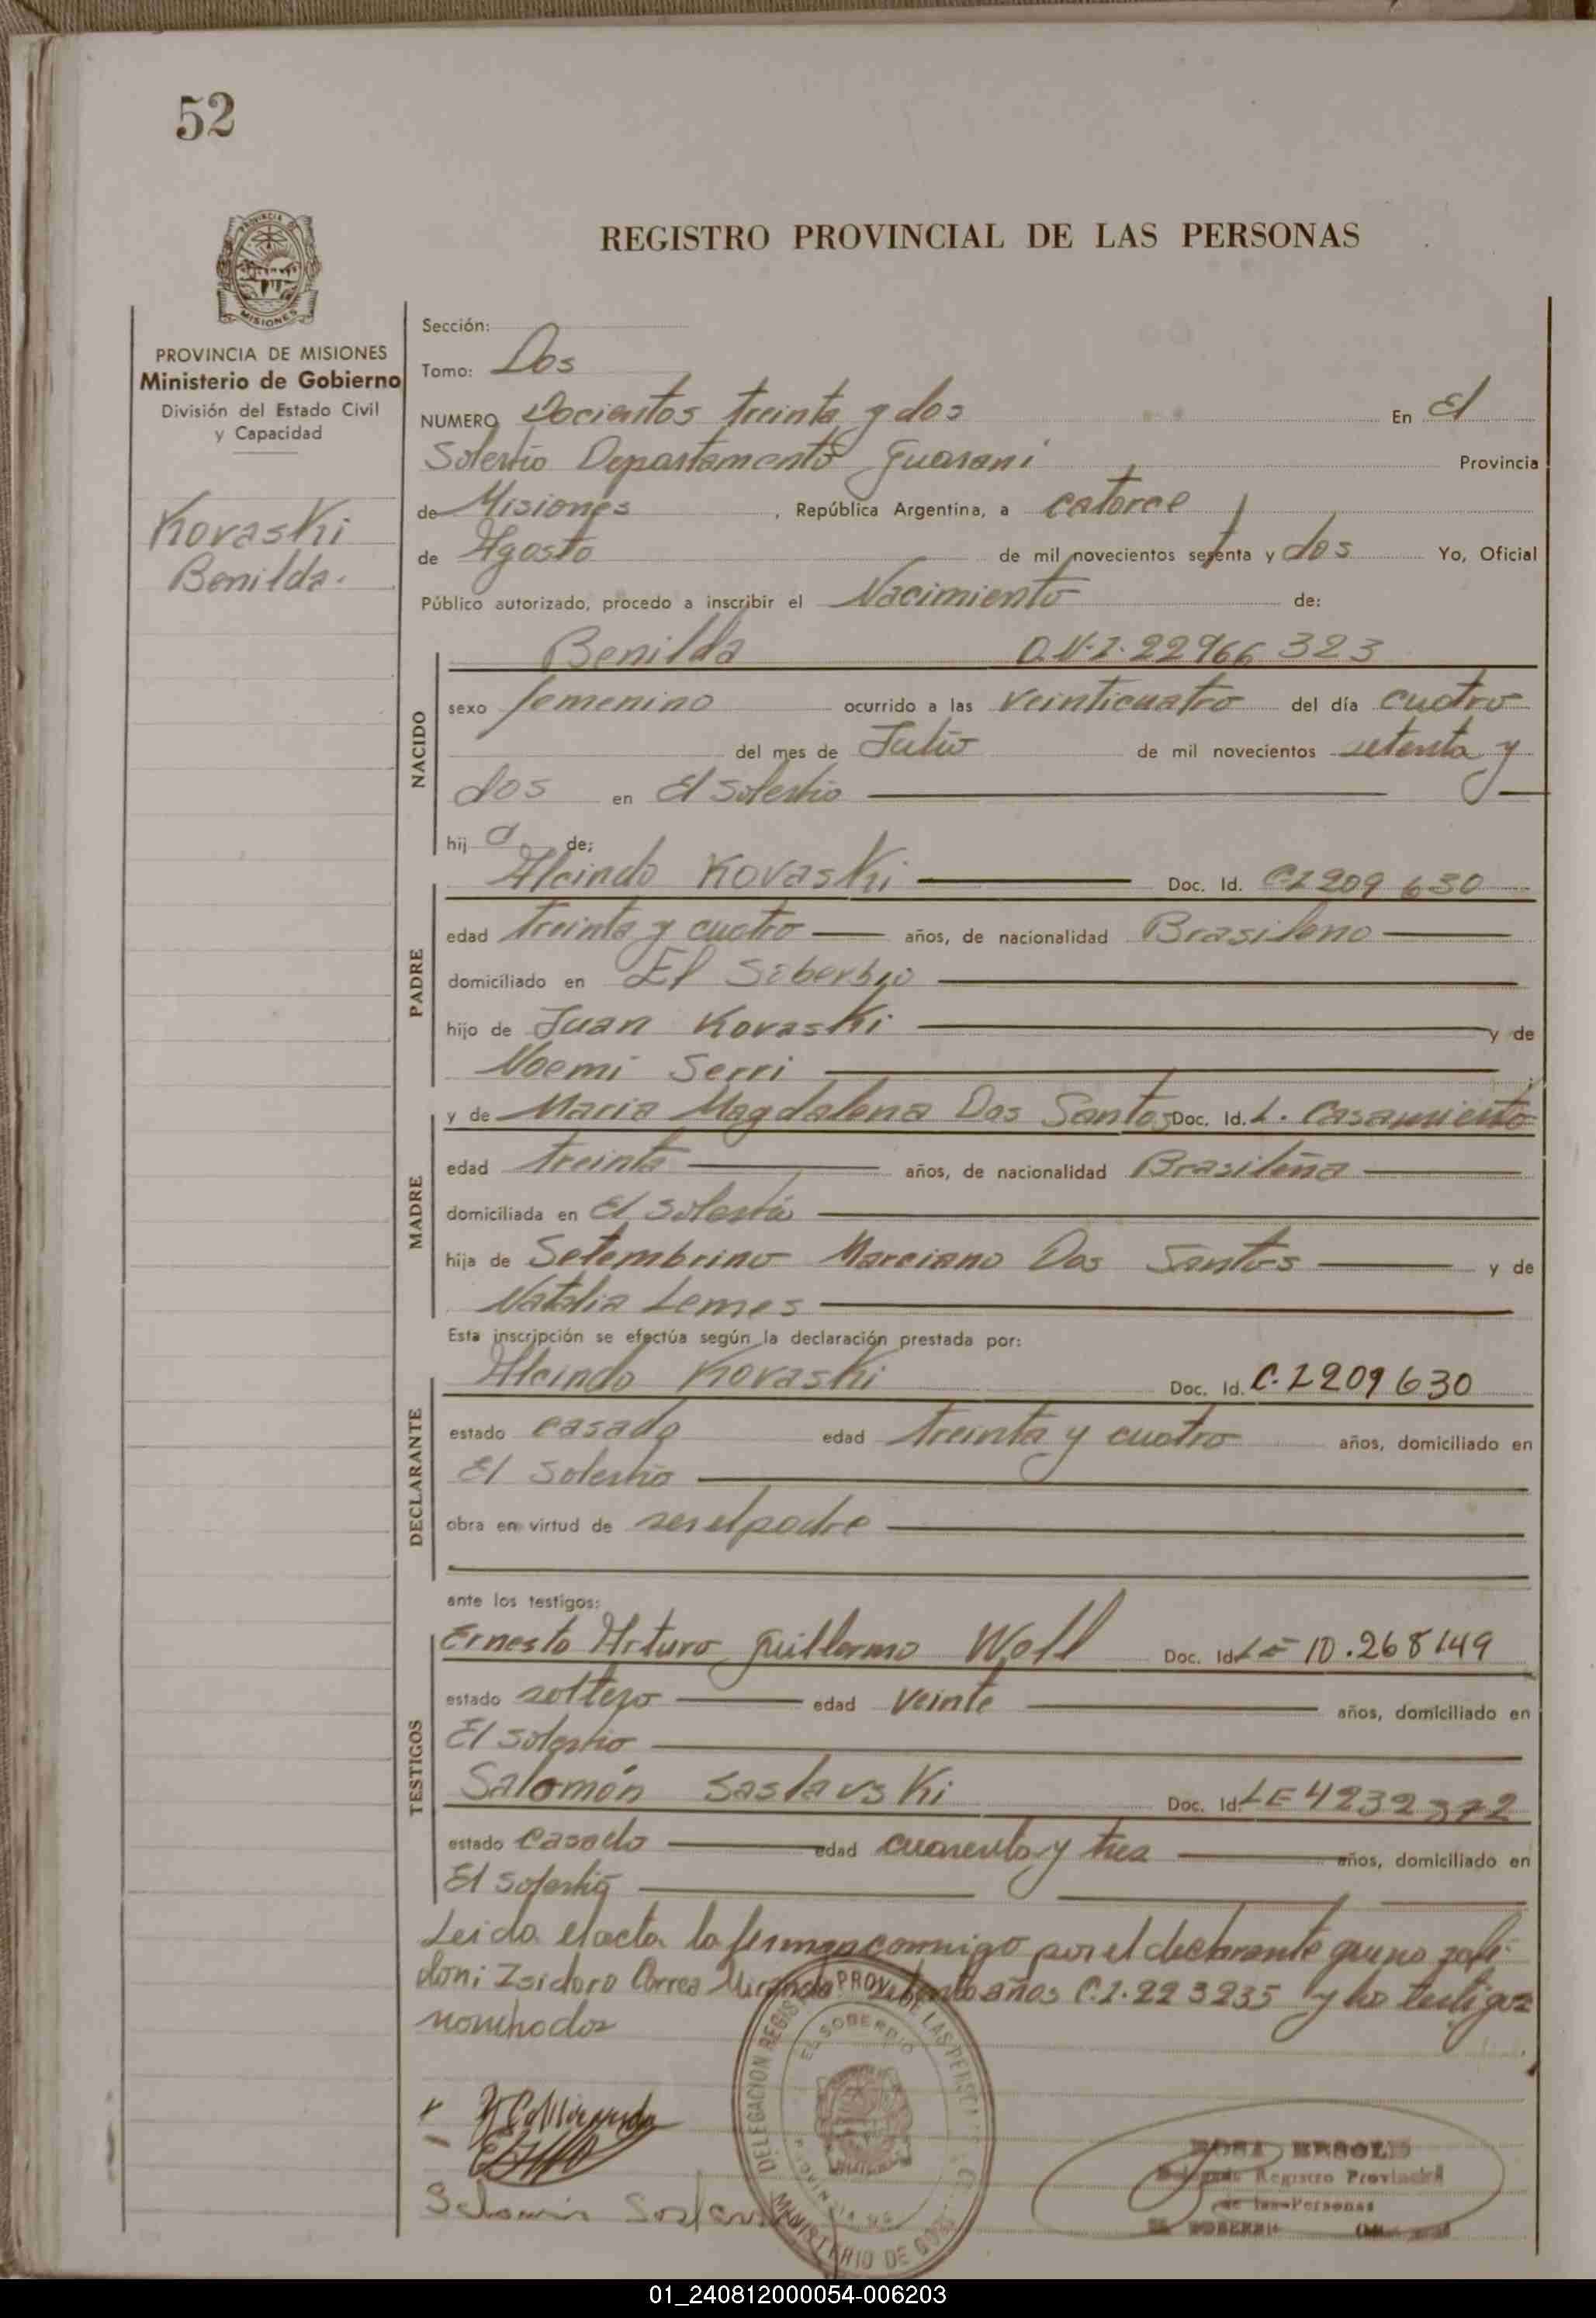 52
PROVINCIA DE
MISIONES
REGISTRO PROVINCIAL DE LAS PERSONAS
PROVINCIA DE MISIONES
Ministerio de Gobierno
División del Estado Civil
y Capacidad
Kovaski
Benilda.
Sección:
Tomo: Dos
NUMERO Docientos treinta y dos En El
Soberbio Departamento Guarani Provincia
de Misiones, República Argentina, a catorce
de Agosto de mil novecientos setenta y dos Yo, Oficial
Público autorizado, procedo a inscribir el Nacimiento de:
NACIDO
Benilda D.N.I. 22966 323
sexo femenino ocurrido a las veinticuatro del día cuatro
del mes de Julio de mil novecientos setenta y
dos en El Soberbio
hij a de;
PADRE
Alcindo Kovaski Doc. Id. CI 209 630
edad treinta y cuatro años, de nacionalidad Brasileno
domiciliado en El Soberbio
hijo de Juan Kovaski y de
Noemi Serri
MADRE
y de Maria Magdalena Dos Santos Doc. Id. L. Casamiento
edad treinta años, de nacionalidad Brasileña
domiciliada en El Soberbio
hija de Setembrino Marciano Dos Santos y de
Natalia Lemes
Esta inscripción se efectúa según la declaración prestada por:
DECLARANTE
Alcindo Kovaski Doc. Id. C.I 209 630
estado casado edad treinta y cuatro años, domiciliado en
El Soberbio
obra en virtud de ser el padre
ante los testigos:
TESTIGOS
Ernesto Arturo Guillermo Woll Doc. Id. LE 10.268149
estado soltero edad veinte años, domiciliado en
El Soberbio
Salomón Saslavski Doc. Id. LE 4232372
estado casado edad cuarenta y tres años, domiciliado en
El Soberbio
Leida el acta la firman conmigo por el declarante que no sabe
doni Isidoro Correa Miranda años C.I. 223235 y los testigos
nombrados
DELEGACION REGISTRO PROV. DE LAS PERSONAS
EL SOBERBIO
MINISTERIO DE GOB.
Delegada Registro Provincial
de las Personas
EL SOBERBIO
01_240812000054-006203